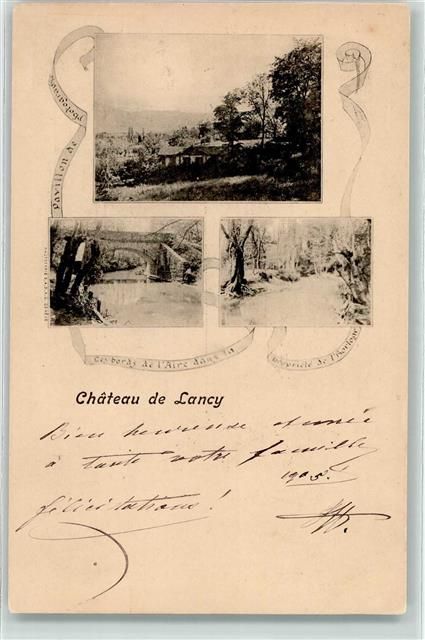 Pavillon de
Les bords de l'Aire dans la
propriété de l'Horloge
Château de Lancy
Bien heureuse année
à toute votre famille
1905.
félicitations!